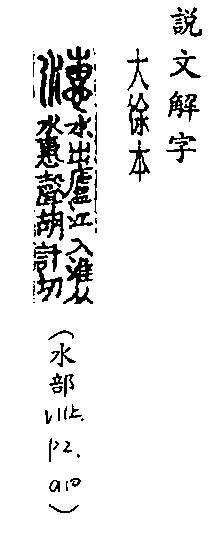 説文解字
大徐本
潓水出廬江入淮从
水惠聲胡計切
(水部 V11上. P2. a10)